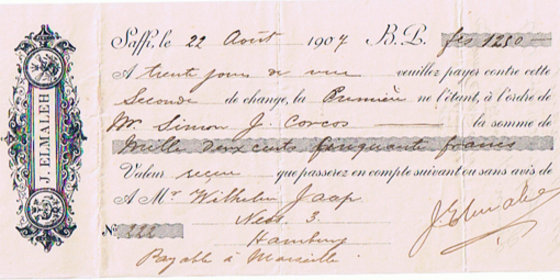 J. ELMALEH
Saffi, le 22 Août 1907 B. P. fcs 1250
A trente jours de vue veuillez payer contre cette
Seconde de change, la Première ne l'étant, à l'ordre de
Mr. Simon J. Corcos la somme de
Mille deux cents cinquante francs
Valeur reçue que passerez en compte suivant ou sans avis de
A Mr Wilhelm Jaap
Ness 3
Hamburg
No 222
Payable à Marseille
J Elmaleh